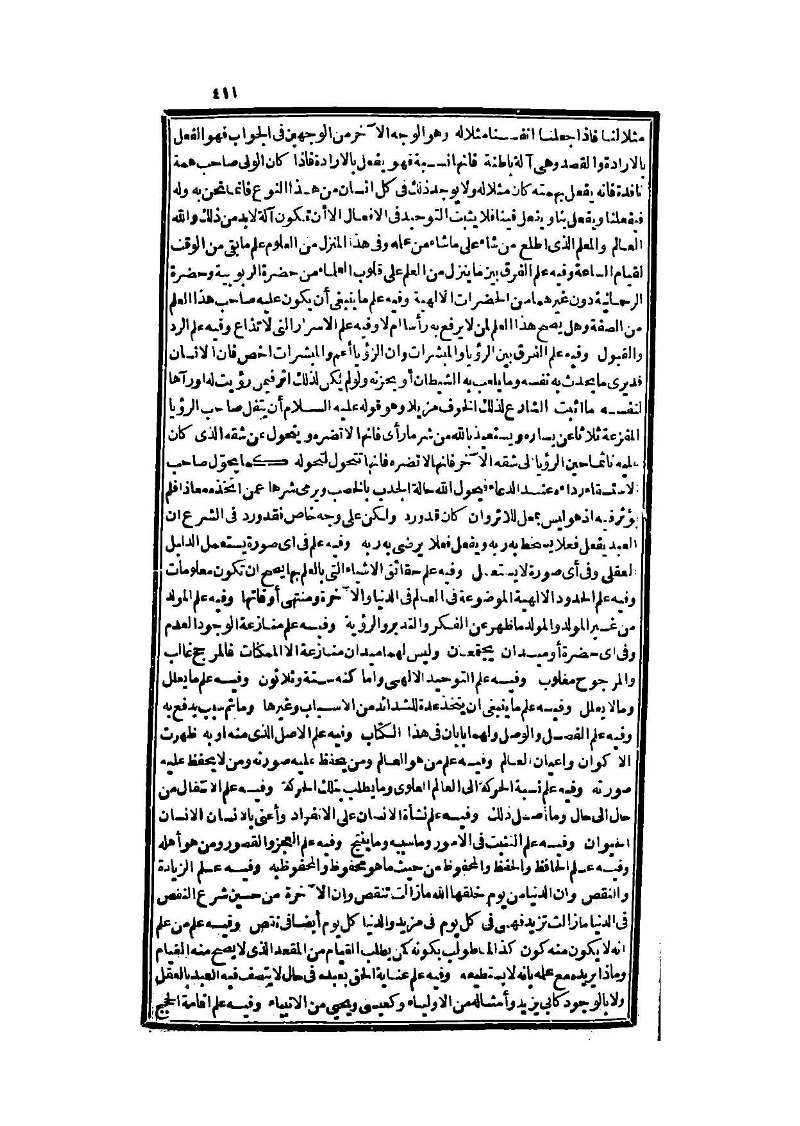 ٤١١
مثلا لنا فاذا جعلنا انفسنا مثلا له وهو الوجه الآخر من الوجهين فى الجواب فهو الفعل
بالارادة والقصد وهى آلة باطنة فانها نسبة فهو يفعل بالارادة فاذا كان الولى صاحب همة
نافذة فانه يفعل بهمته كان مثلا له ولا يوجد ذلك فى كل انسان من هذا النوع فانما نحن به وله
فيفعلنا ويفعل بنا ويفعل فينا فلا يثبت التوحيد فى الافعال الا أن تكون آلة لا بد من ذلك والله
العالم والمعلم الذى اطلع من شاء على ما شاء من علمه وفى هذا المنزل من العلوم علم ما بقى من الوقت
لقيام الساعة وفيه علم الفرق بين ما ينزل من العلم على قلوب العلماء من حضرة الربوبية وحضرة
الرحمانية دون غيرهما من الحضرات الالهية وفيه علم ما ينبغى أن يكون عليه صاحب هذا العلم
من الصفة وهل يصح هذا العلم لمن لا يرفع به رأسا أم لا وفيه علم الاسرار التى لا تذاع وفيه علم الرد
والقبول وفيه علم الفرق بين الرؤيا والمبشرات وان الرؤيا أعم والمبشرات اخص فان الانسان
قد يرى ما يحدث به نفسه وما يلعب به الشيطان أو يحزنه ولو لم يكن لذلك اثر فيمن رؤيت له او رآها
لنفسه ما اثبت الشارع لذلك الخوف مزيلا وهو قوله عليه السلام أن يتفل صاحب الرؤيا
المفزعة ثلاثا عن يساره ويستعيذ بالله من شر ما رأى فانها لا تضره ويتحول عن شقه الذى كان
عليه نائما حين الرؤيا الى شقه الآخر فانها لا تضره فانها تتحول لتحوله كما يحول صاحب
الاستسقاء رداءه عند الدعاء فيحول الله حالة الجدب بالخصب ويرمى شرها عمن اتخذه معاذا فلم
يؤثر فيه اذ هو ليس بمحل للاثر وان كان قد ورد ولكن على وجه خاص فقد ورد فى الشرع ان
العبد يفعل فعلا يسخط به ربه ويفعل فعلا يرضى به ربه وفيه علم فى اى صورة يستعمل الدليل
العقلى وفى أى صورة لا يستعمل وفيه علم حقائق الاشياء التى بالعلم بها يصح ان تكون معلومات
وفيه علم الحدود الالهية الموضوعة فى العالم فى الدنيا والآخرة ومنتهى أوقاتها وفيه علم المولد
من غير المولد والمولد ما ظهر عن الفكر والتدبير والرؤية وفيه علم منازعة الوجود العدم
وفى اى حضرة أو ميدان يجتمعان وليس لهما ميدان منازعة الا الممكنات فالمرجح غالب
والمرجوح مغلوب وفيه علم التوحيد الالهى واماكنه ستة وثلاثون وفيه علم ما يعلل
وما لا يعلل وفيه علم ما ينبغى ان يتخذ عدة للشدائد من الاسباب وغيرها وما ثم سبب يدفع به
وفيه علم الفصل والوصل ولهما بابان فى هذا الكتاب وفيه علم الاصل الذى منه او به ظهرت
الاكوان واعيان العالم وفيه علم من هو العالم ومن يحفظ عليه صورته ومن لا يحفظ عليه
صورته وفيه علم نسبة الحركة الى العالم العلوى وما يطلب بتلك الحركة وفيه علم الانتقال من
حال الى حال وما أصل ذلك وفيه علم نشأة الانسان على الانفراد وأعنى بالانسان الانسان
الحيوان وفيه علم التثبت فى الامور وما سببه وما ينتج وفيه علم العجز والقصور ومن هو أهله
وفيه علم الحافظ والحفظ والمحفوظ من حيث ما هو محفوظ والمحفوظ به وفيه علم الزيادة
والنقص وان الدنيا من يوم خلقها الله ما زالت تنقص وان الآخرة من حين شرع النقص
فى الدنيا ما زالت تزيد فهى فى كل يوم فى مزيد والدنيا كل يوم أيضا فى نقص وفيه علم من علم
انه لا يكون منه كون كذا لما طولب بكونه كمن يطلب القيام من المقعد الذى لا يصح منه القيام
وماذا يريد مع علمه بانه لا يستطيعه وفيه علم عناية الحق بعبده فى حال لا يتصف فيه العبد بالعقل
ولا بالوجود كابى يزيد وأمثاله من الاولياء وكعيسى ويحيى من الانبياء وفيه علم اقامة الحجج